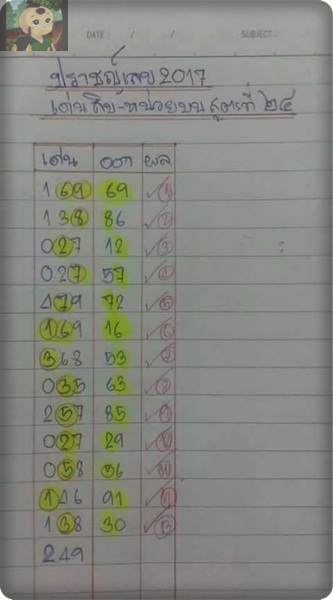 DATE : / / SUBJECT :
ปราชญ์เลข 2017
เด่นสิบ-หน่วยบน สูตรที่ ๒๔
เด่น ออก ผล
169 69 ✓①
138 86 ✓②
027 12 ✓③
027 57 ✓④
479 72 ✓⑤
169 16 ✓⑥
368 53 ✓⑦
035 63 ✓⑧
257 85 ✓⑨
027 29 ✓⑩
058 56 ✓⑪
146 91 ✓⑫
138 30 ✓⑬
249